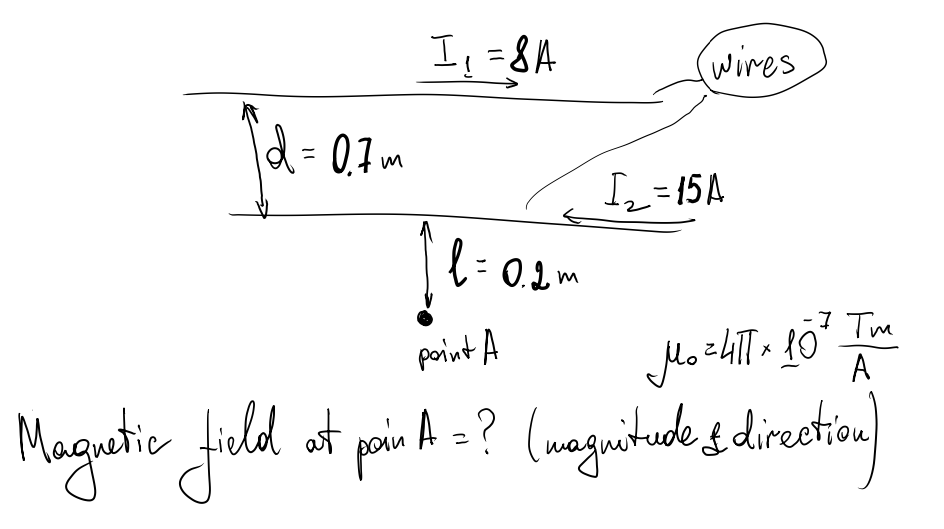 I₁ = 8A
wires
d = 0.7 m
I₂ = 15A
l = 0.2 m
point A
μ₀ = 4π × 10⁻⁷ Tm/A
Magnetic field at poin A = ? (magnitude & direction)